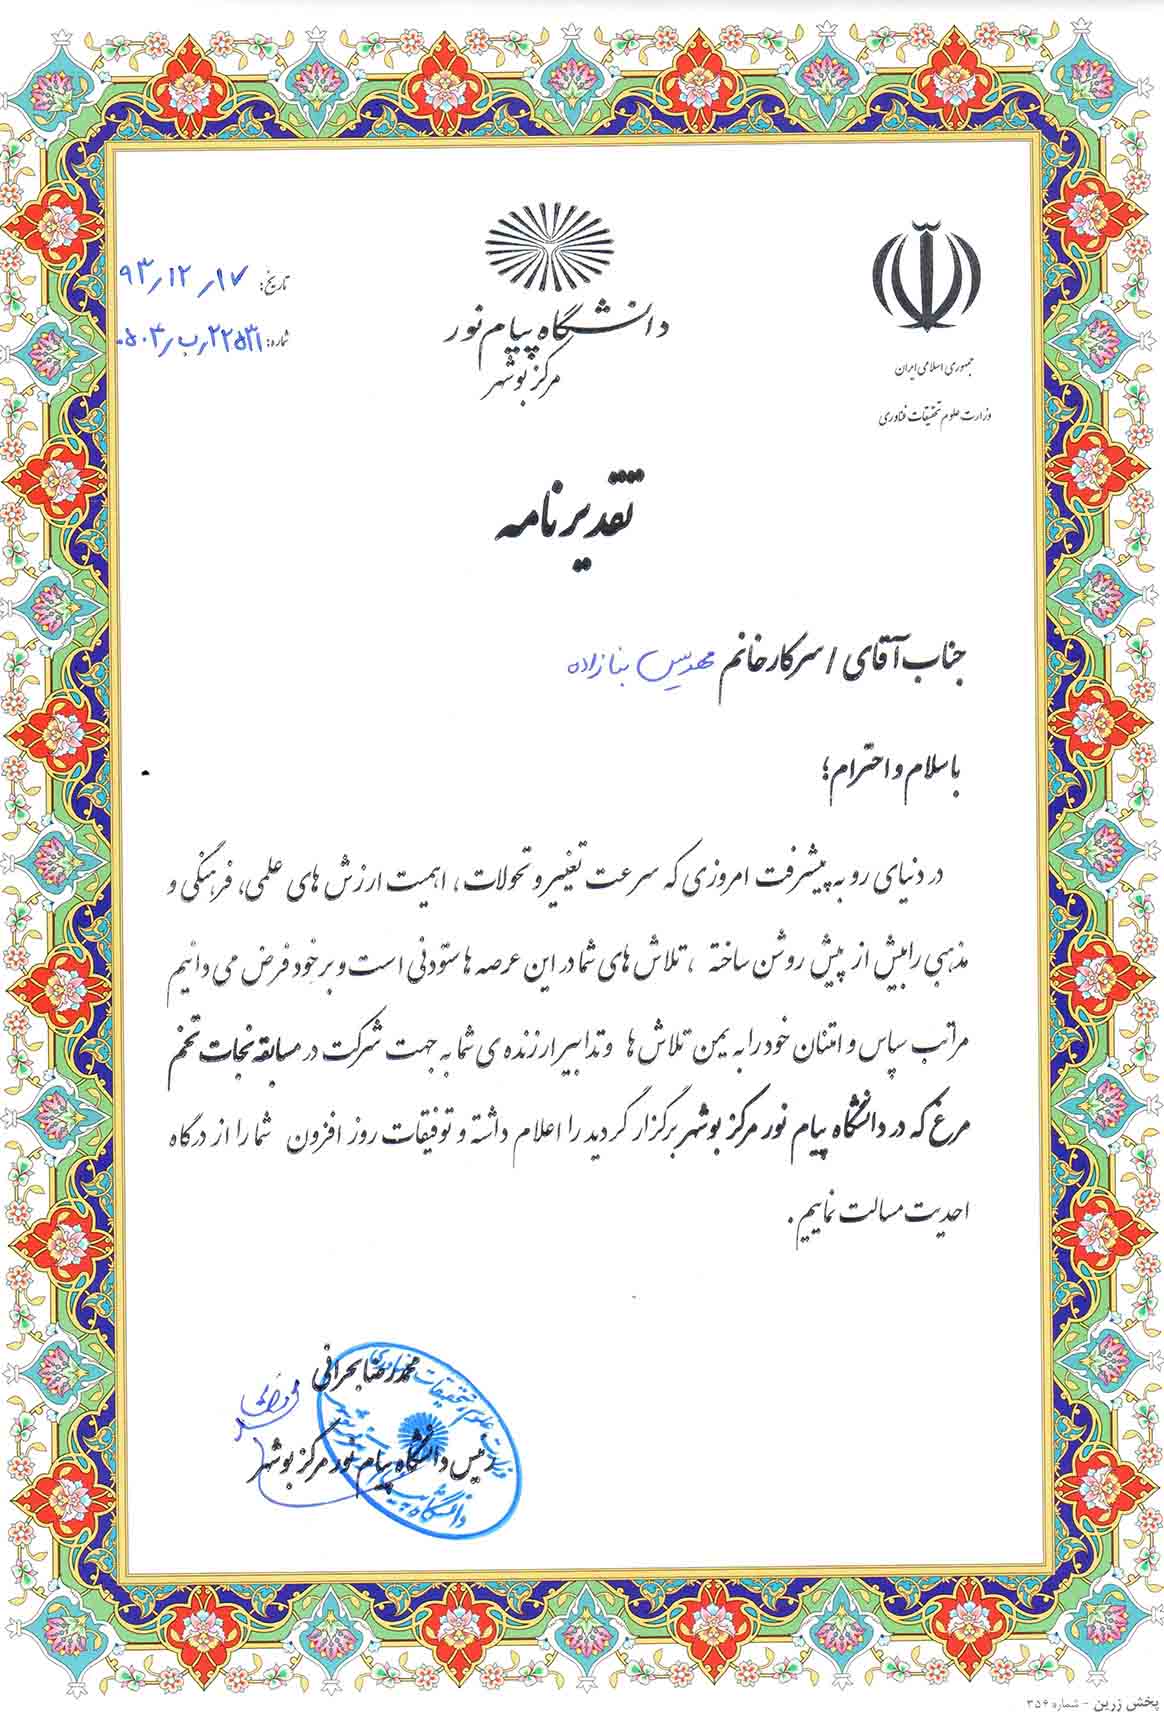 جمهوری اسلامی ایران
وزارت علوم تحقیقات فناوری
دانشگاه پیام نور
مرکز بوشهر
تاریخ: ۹۳/۱۲/۱۷
شماره: ۰۵۰۴/ب/۲۲۵۳۱
تقدیرنامه
جناب آقای / سرکار خانم مهندس بنازاده
با سلام و احترام؛
در دنیای رو به پیشرفت امروزی که سرعت تغییر و تحولات، اهمیت ارزش های علمی، فرهنگی و
مذهبی را بیش از پیش روشن ساخته ، تلاش های شما در این عرصه ها ستودنی است و بر خود فرض می دانیم
مراتب سپاس و امتنان خود را به یمن تلاش ها و تدابیر ارزنده ی شما به جهت شرکت در مسابقه نجات تخم
مرغ که در دانشگاه پیام نور مرکز بوشهر برگزار گردید را اعلام داشته و توفیقات روز افزون شما را از درگاه
احدیت مسالت نماییم.
محمدرضا بحرانی
رئیس دانشگاه پیام نور مرکز بوشهر
وزارت علوم تحقیقات و فناوری
دانشگاه پیام نور
پخش زرین - شماره ۳۵۶